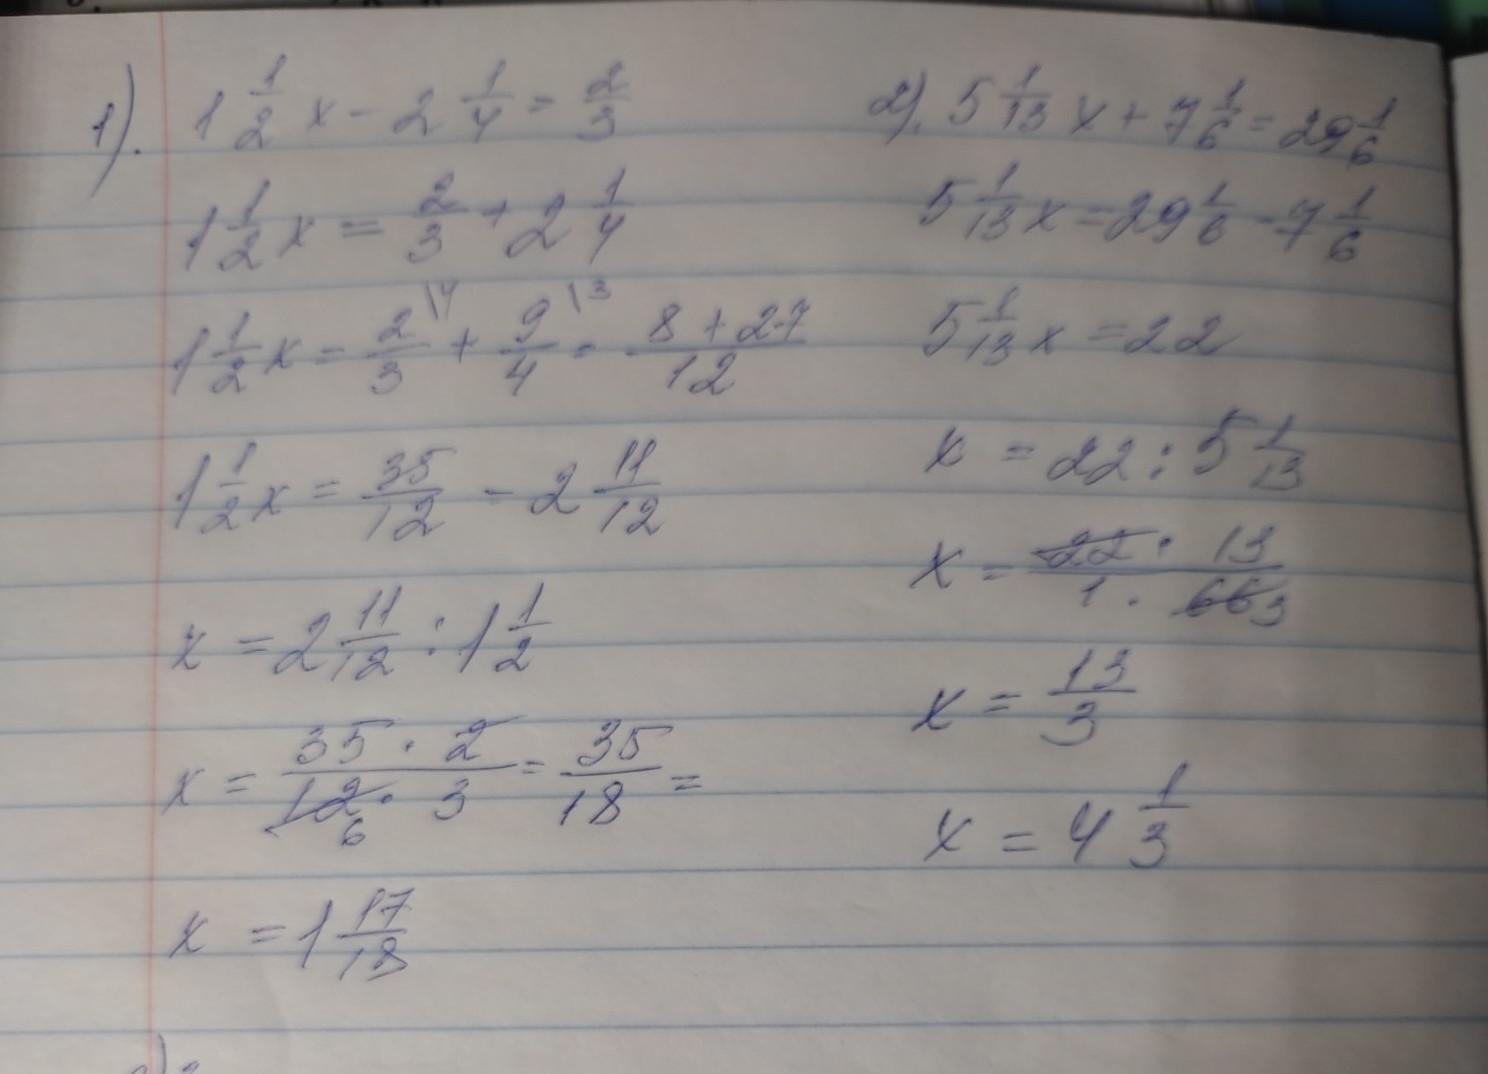 1). 1 1/2 x - 2 1/4 = 2/3
1 1/2 x = 2/3 + 2 1/4
1 1/2 x = 2/3 \4 + 9/4 \3 = 8 + 27/12
1 1/2 x = 35/12 = 2 11/12
x = 2 11/12 : 1 1/2
x = 35 · 2/12 6 · 3 = 35/18 =
x = 1 17/18
2). 5 1/13 x + 7 1/6 = 29 1/6
5 1/13 x = 29 1/6 - 7 1/6
5 1/13 x = 22
x = 22 : 5 1/13
x = 22 · 13/1 · 66 3
x = 13/3
x = 4 1/3